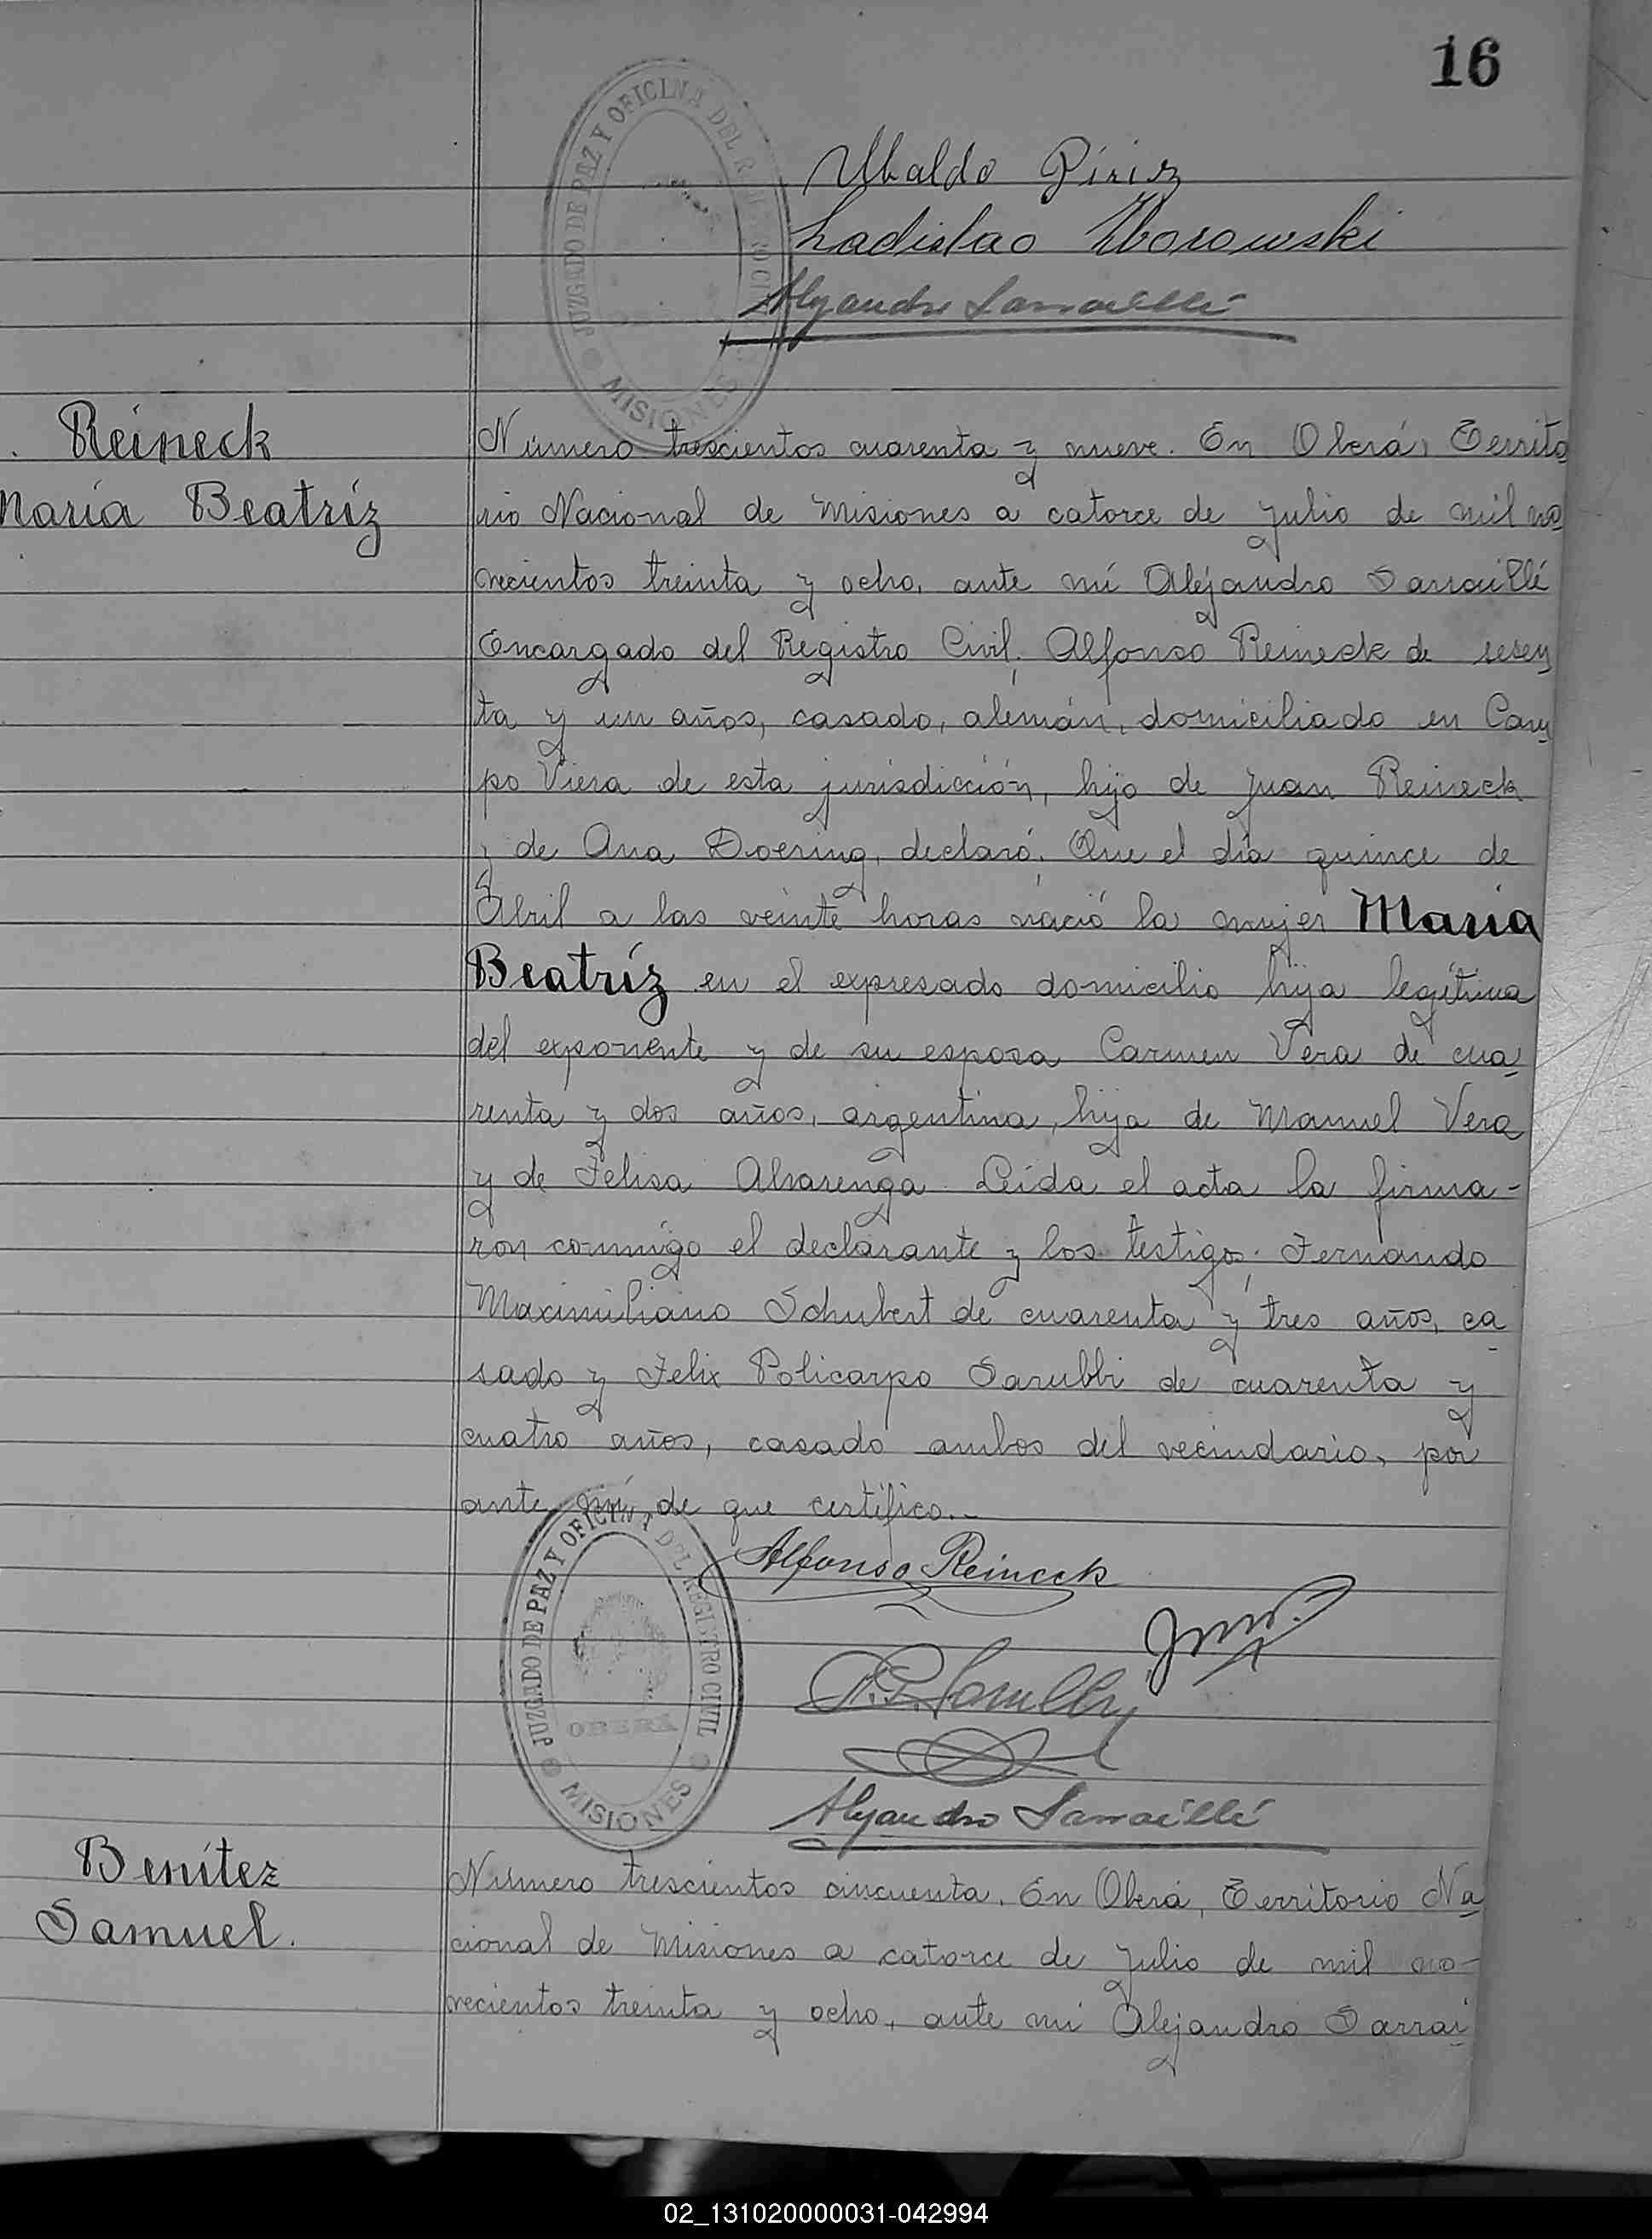 16
Ubaldo Piriz
Ladislao Zborowski
Alejandro Sarraillé
JUZGADO DE PAZ Y OFICINA DEL REGISTRO CIVIL
MISIONES
Reineck
Maria Beatríz
Número trescientos cuarenta y nueve. En Oberá, Territo
rio Nacional de Misiones a catorce de julio de mil no
vecientos treinta y ocho, ante mí Alejandro Sarraillé
Encargado del Registro Civil; Alfonso Reineck de sesen
ta y un años, casado, alemán, domiciliado en Cam
po Viera de esta jurisdicción, hijo de Juan Reineck
y de Ana Doering, declaró; Que el día quince de
Abril a las veinte horas nació la mujer Maria
Beatríz en el expresado domicilio hija legítima
del exponente y de su esposa Carmen Vera de cua
renta y dos años, argentina, hija de Manuel Vera
y de Felisa Alvarenga. Leída el acta la firma-
ron conmigo el declarante y los testigos; Fernando
Maximiliano Schubert de cuarenta y tres años, ca
sado y Felix Policarpo Sarubbi de cuarenta y
cuatro años, casado ambos del vecindario, por
ante mí de que certifico.-
Alfonso Reineck
F. P. Sarubbi
Alejandro Sarraillé
JUZGADO DE PAZ Y OFICINA DEL REGISTRO CIVIL
OBERÁ
MISIONES
Benítez
Samuel.
Número trescientos cincuenta. En Oberá, Territorio Na
cional de Misiones a catorce de julio de mil no-
vecientos treinta y ocho, ante mi Alejandro Sarrai
02_131020000031-042994